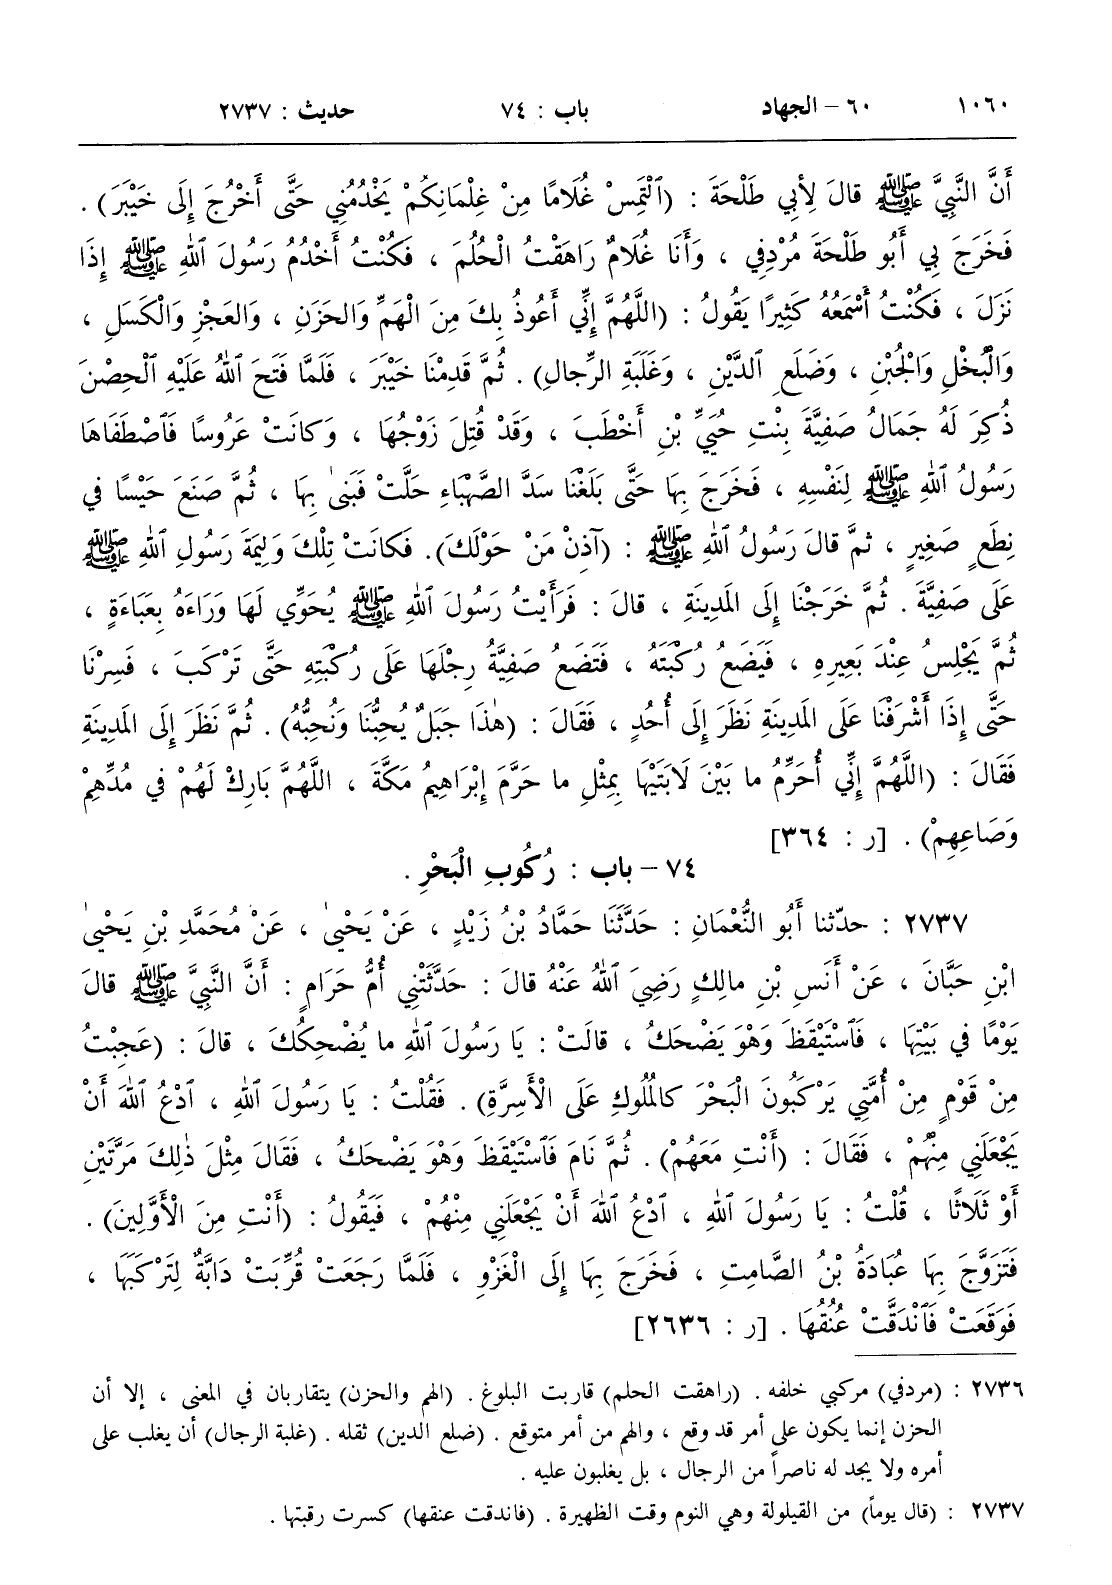 ١٠٦٠ ٦٠ – الجهاد باب : ٧٤ حديث : ٢٧٣٧
أَنَّ النَّبِيَّ ﷺ قالَ لِأَبِي طَلْحَةَ : (ٱلْتَمِسْ غُلَامًا مِنْ غِلْمَانِكُمْ يَخْدُمُنِي حَتَّى أَخْرُجَ إِلَى خَيْبَرَ) .
فَخَرَجَ بِي أَبُو طَلْحَةَ مُرْدِفِي ، وَأَنَا غُلَامٌ رَاهَقْتُ الْحُلُمَ ، فَكُنْتُ أَخْدُمُ رَسُولَ ٱللهِ ﷺ إِذَا
نَزَلَ ، فَكُنْتُ أَسْمَعُهُ كَثِيرًا يَقُولُ : (اللَّهُمَّ إِنِّي أَعُوذُ بِكَ مِنَ الْهَمِّ وَالحَزَنِ ، وَالعَجْزِ وَالْكَسَلِ ،
وَالْبُخْلِ وَالْجُبْنِ ، وَضَلَعِ ٱلدَّيْنِ ، وَغَلَبَةِ الرِّجالِ) . ثُمَّ قَدِمْنَا خَيْبَرَ ، فَلَمَّا فَتَحَ ٱللهُ عَلَيْهِ الْحِصْنَ
ذُكِرَ لَهُ جَمَالُ صَفِيَّةَ بِنْتِ حُيَيِّ بْنِ أَخْطَبَ ، وَقَدْ قُتِلَ زَوْجُهَا ، وَكانَتْ عَرُوسًا فَٱصْطَفَاهَا
رَسُولُ ٱللهِ ﷺ لِنَفْسِهِ ، فَخَرَجَ بِهَا حَتَّى بَلَغْنَا سَدَّ الصَّهْبَاءِ حَلَّتْ فَبَنىٰ بِهَا ، ثُمَّ صَنَعَ حَيْسًا في
نِطَعٍ صَغِيرٍ ، ثمَّ قالَ رَسُولُ ٱللهِ ﷺ : (آذِنْ مَنْ حَوْلَكَ). فَكانَتْ تِلْكَ وَلِيمَةَ رَسُولِ ٱللهِ ﷺ
عَلَى صَفِيَّةَ . ثُمَّ خَرَجْنَا إِلَى المَدِينَةِ ، قالَ : فَرَأَيْتُ رَسُولَ ٱللهِ ﷺ يُحَوِّي لَهَا وَرَاءَهُ بِعَبَاءَةٍ ،
ثُمَّ يَجْلِسُ عِنْدَ بَعِيرِهِ ، فَيَضَعُ رُكْبَتَهُ ، فَتَضَعُ صَفِيَّةُ رِجْلَهَا عَلَى رُكْبَتِهِ حَتَّى تَرْكَبَ ، فَسِرْنَا
حَتَّى إِذَا أَشْرَفْنَا عَلَى المَدِينَةِ نَظَرَ إِلَى أُحُدٍ ، فَقَالَ : (هٰذَا جَبَلٌ يُحِبُّنَا وَنُحِبُّهُ) . ثُمَّ نَظَرَ إِلَى المَدِينَةِ
فَقَالَ : (اللَّهُمَّ إِنِّي أُحَرِّمُ ما بَيْنَ لَابَتَيْهَا بِمِثْلِ ما حَرَّمَ إِبْرَاهِيمُ مَكَّةَ ، اللَّهُمَّ بَارِكْ لَهُمْ في مُدِّهِمْ
وَصَاعِهِمْ) . [ر : ٣٦٤]
٧٤ – باب : رُكُوبِ الْبَحْرِ .
٢٧٣٧ : حدّثنا أَبُو النُّعْمَانِ : حَدَّثَنَا حَمَّادُ بْنُ زَيْدٍ ، عَنْ يَحْيىٰ ، عَنْ مُحَمَّدِ بْنِ يَحْيىٰ
ابْنِ حَبَّانَ ، عَنْ أَنَسِ بْنِ مالِكٍ رَضِيَ ٱللهُ عَنْهُ قالَ : حَدَّثَتْنِي أُمُّ حَرَامٍ : أَنَّ النَّبِيَّ ﷺ قالَ
يَوْمًا في بَيْتِهَا ، فَٱسْتَيْقَظَ وَهْوَ يَضْحَكُ ، قالَتْ : يَا رَسُولَ ٱللهِ ما يُضْحِكُكَ ، قالَ : (عَجِبْتُ
مِنْ قَوْمٍ مِنْ أُمَّتِي يَرْكَبُونَ الْبَحْرَ كالمُلُوكِ عَلَى الْأَسِرَّةِ) . فَقُلْتُ : يَا رَسُولَ ٱللهِ ، ٱدْعُ ٱللهَ أَنْ
يَجْعَلَنِي مِنْهُمْ ، فَقَالَ : (أَنْتِ مَعَهُمْ) . ثُمَّ نَامَ فَٱسْتَيْقَظَ وَهْوَ يَضْحَكُ ، فَقَالَ مِثْلَ ذٰلِكَ مَرَّتَيْنِ
أَوْ ثَلَاثًا ، قُلْتُ : يَا رَسُولَ ٱللهِ ، ٱدْعُ ٱللهَ أَنْ يَجْعَلَنِي مِنْهُمْ ، فَيَقُولُ : (أَنْتِ مِنَ الْأَوَّلِينَ) .
فَتَزَوَّجَ بِهَا عُبَادَةُ بْنُ الصَّامِتِ ، فَخَرَجَ بِهَا إِلَى الْغَزْوِ ، فَلَمَّا رَجَعَتْ قُرِّبَتْ دَابَّةٌ لِتَرْكَبَهَا ،
فَوَقَعَتْ فَٱنْدَقَّتْ عُنُقُهَا . [ر : ٢٦٣٦]
٢٧٣٦ : (مردفي) مركبي خلفه . (راهقت الحلم) قاربت البلوغ . (الهم والحزن) يتقاربان في المعنى ، إلا أن
الحزن إنما يكون على أمر قد وقع ، والهم من أمر متوقع . (ضلع الدين) ثقله . (غلبة الرجال) أن يغلب على
أمره ولا يجد له ناصراً من الرجال ، بل يغلبون عليه .
٢٧٣٧ : (قال يوماً) من القيلولة وهي النوم وقت الظهيرة . (فاندقت عنقها) كسرت رقبتها .